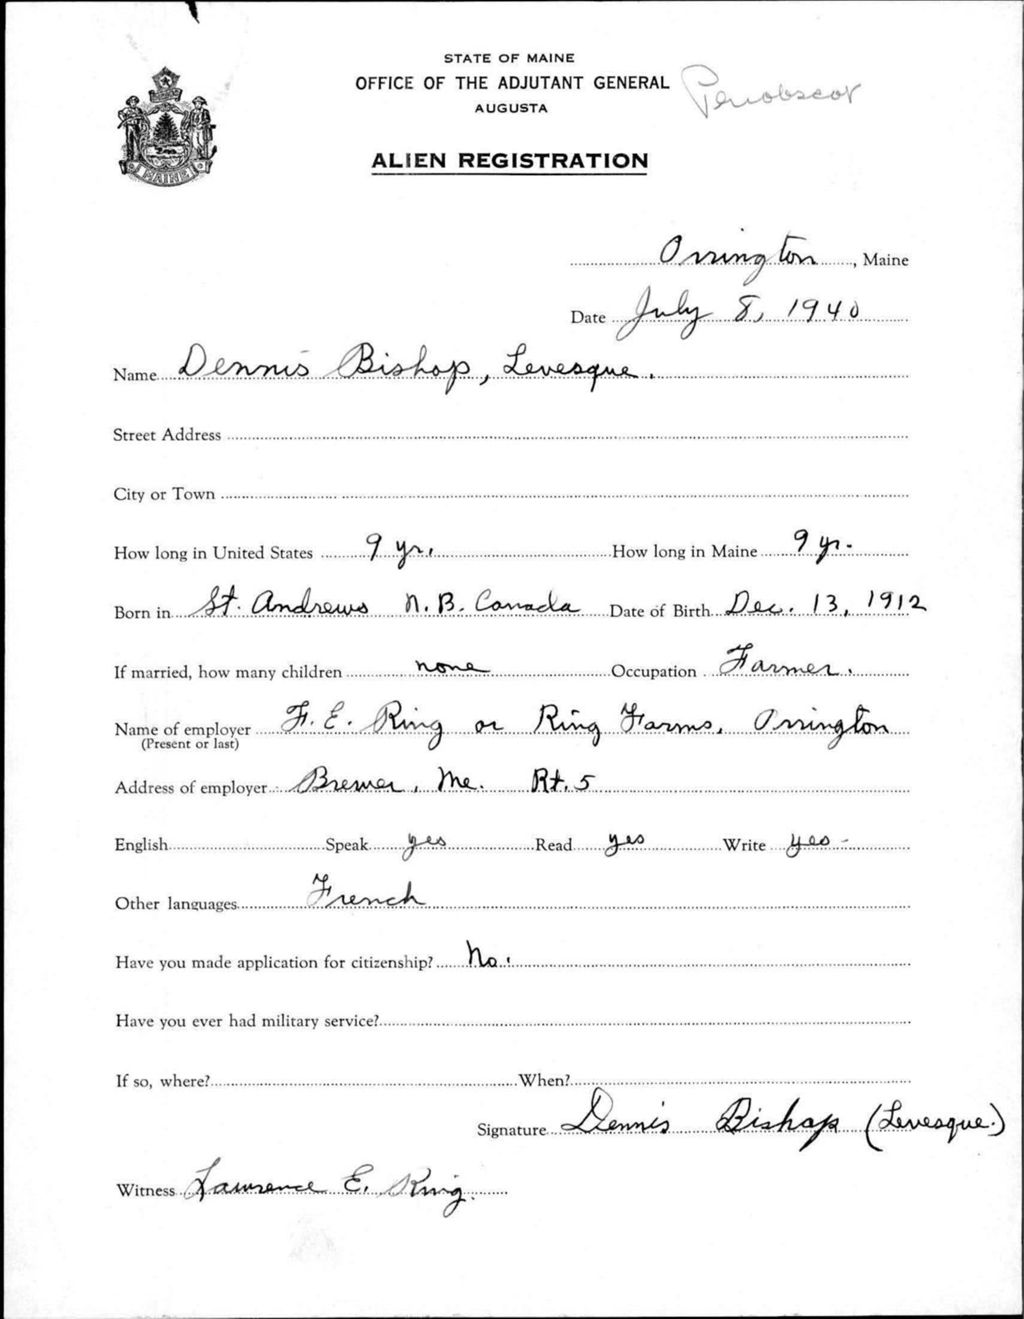 STATE OF MAINE
OFFICE OF THE ADJUTANT GENERAL
AUGUSTA
Penobscot
ALIEN REGISTRATION
MAINE
Orrington, Maine
Date July 8, 1940
Name Dennis Bishop, Levesque.
Street Address
City or Town
How long in United States 9 yr. How long in Maine 9 yr.
Born in St. Andrews N.B. Canada Date of Birth Dec. 13, 1912
If married, how many children none Occupation Farmer.
Name of employer F. E. Ring or Ring Farms, Orrington
(Present or last)
Address of employer Brewer, Me. Rt. 5
English Speak yes Read yes Write yes -
Other languages French
Have you made application for citizenship? No.
Have you ever had military service?
If so, where? When?
Signature Dennis Bishop (Levesque.)
Witness Lawrence E. Ring.